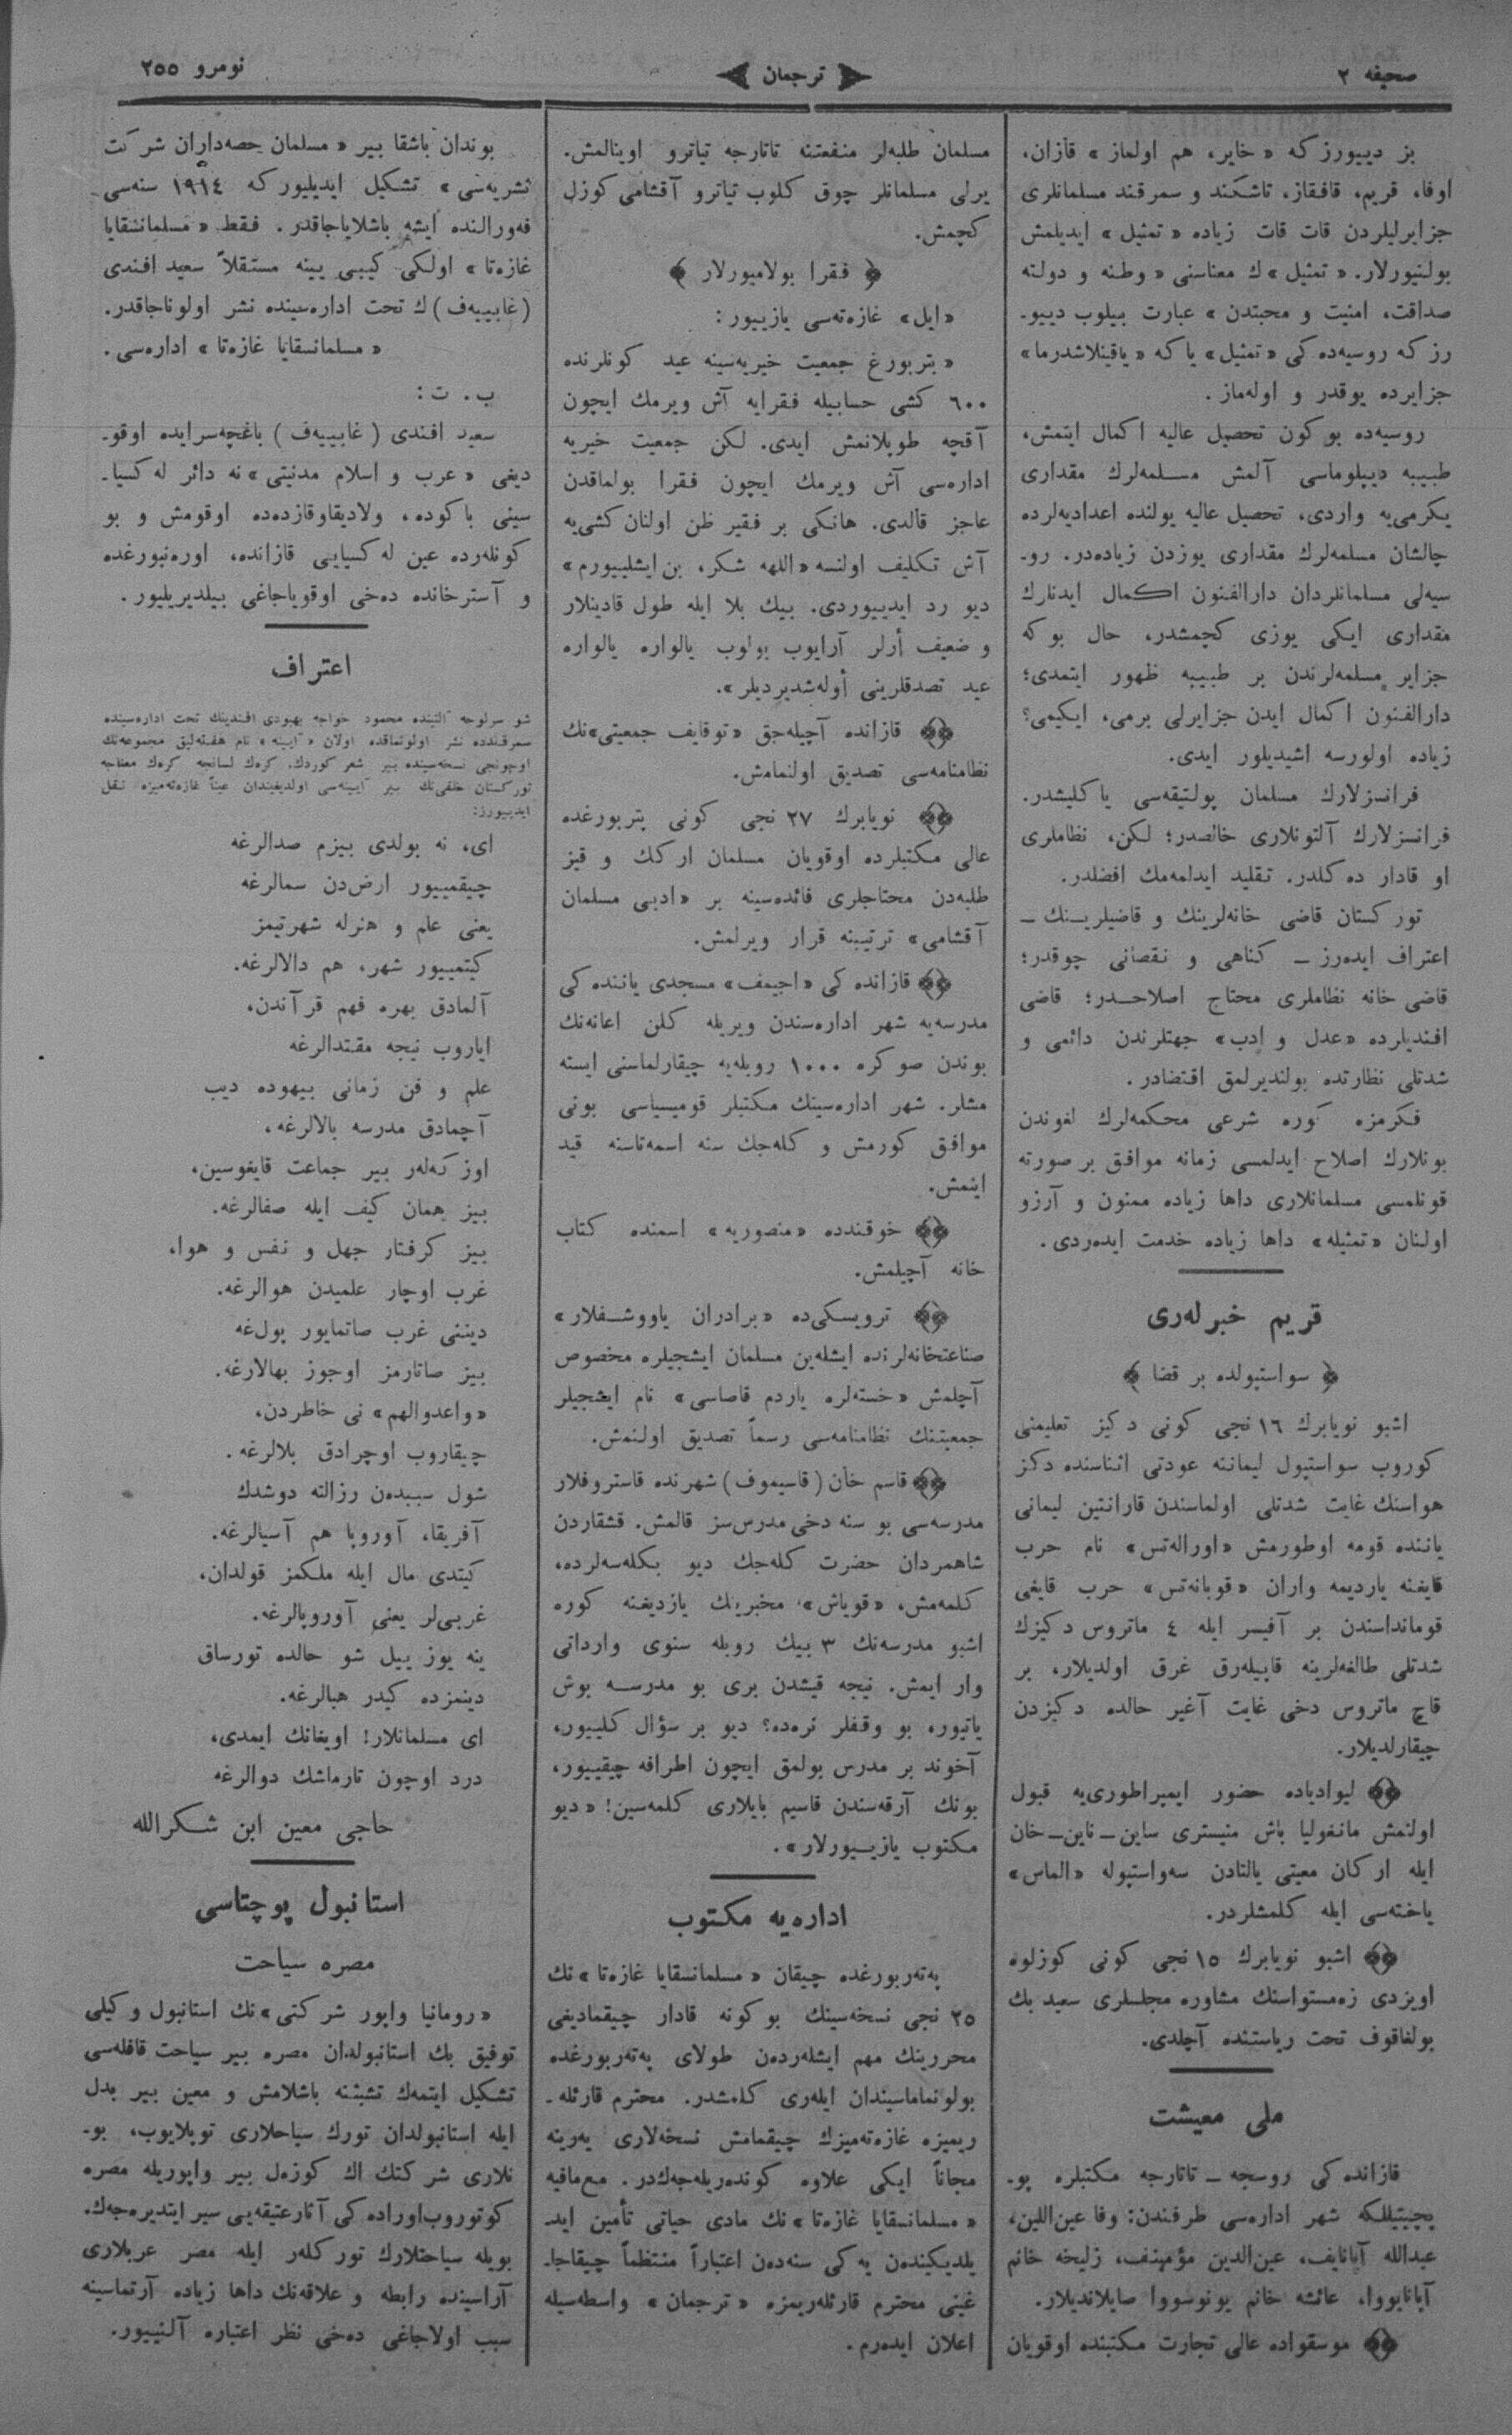 صحیفه ٢
ترجمان
نومرو ٢٥٥
بز دییورزکه «خایر، هم اولماز» قازان،
اوفا، قریم، قافقاز، تاشکند و سمرقند مسلمانلری
جزایرلیلردن قات قات زیاده «تمثیل» ایدیلمش
بولنیورلار. «تمثیل»ك معناسنی «وطنه و دولته
صداقت، امنیت و محبتدن» عبارت بیلوب دییو-
رزکه روسیه‌ده کی «تمثیل» یاکه «یاقینلاشدرما»
جزایرده یوقدر و اوله‌ماز.
روسیه‌ده بوکون تحصیل عالیه اکمال ایتمش،
طبیبه دیپلوماسی آلمش مسلمه‌لرك مقداری
یکرمی‌یه واردی، تحصیل عالیه یولنده اعدادیه‌لرده
چالشان مسلمه‌لرك مقداری یوزدن زیاده‌در. رو-
سیه‌لی مسلمانلردان دارالفنون اکمال ایدنلرك
مقداری ایکی یوزی کچمشدر، حال بوکه
جزایر مسلمه‌لرندن بر طبیبه ظهور ایتمدی؛
دارالفنون اکمال ایدن جزایرلی برمی، ایکیمی؟
زیاده اولورسه اشیدیلور ایدی.
فرانسزلارك مسلمان پولتیقه‌سی یاکلیشدر.
فرانسزلارك آلتونلاری خالصدر؛ لکن، نظاملری
او قادار ده‌کلدر. تقلید ایدلمه‌مك افضلدر.
تورکستان قاضی خانه‌لرینك و قاضیلرینك —
اعتراف ایده‌رز — کناهی و نقصانی چوقدر؛
قاضی خانه نظاملری محتاج اصلاحدر؛ قاضی
افندیلرده «عدل و ادب» جهتلرندن دائمی و
شدتلی نظارتده بولندیرلمق اقتضادر.
فکرمزه کوره شرعی محکمه‌لرك لغوندن
بونلارك اصلاح ایدلمسی زمانه موافق بر صورته
قونلمسی مسلمانلاری داها زیاده ممنون و آرزو
اولنان «تمثیله» داها زیاده خدمت ایده‌ردی.
قریم خبرله‌ری
﴿ سواستپولده بر قضا ﴾
اشبو نویابرك ١٦ نجی کونی دکیز تعلیمنی
کوروب سواستپول لیماننه عودتی اثناسنده دکز
هواسنك غایت شدتلی اولماسندن قارانتین لیمانی
یاننده قومه اوطورمش «اورالەتس» نام حرب
قایغنه یاردیمه واران «قوبانەتس» حرب قایغی
قومانداسندن بر آفیسر ایله ٤ ماتروس دکیزك
شدتلی طالغه‌لرینه قاپیله‌رق غرق اولدیلار، بر
قاچ ماتروس دخی غایت آغیر حالده دکیزدن
چیقارلدیلار.
لیوادیاده حضور ایمپراطوری‌یه قبول
اولنمش مانغولیا باش منیستری ساین—ناین—خان
ایله ارکان معیتی یالتادن سەواستپوله «الماس»
یاخته‌سی ایله کلمشلردر.
اشبو نویابرك ١٥ نجی کونی کوزلوه
اویزدی زەمستواسنك مشاوره مجلسلری سعید بك
بولغاقوف تحت ریاستنده آچلدی.
ملی معیشت
قازانده کی روسجه — تاتارجه مکتبلره پو-
پچیتیللکه شهر اداره‌سی طرفندن: وفا عین‌اللین،
عبدالله آپانایف، عین‌الدین مؤمنف، زلیخه خانم
آپانایووا، عائشه خانم یونوسووا صایلاندیلار.
موسقواده عالی تجارت مکتبنده اوقویان
مسلمان طلبه‌لر منفعتنه تاتارجه تیاترو اوینالمش.
یرلی مسلمانلر چوق کلوب تیاترو آقشامی کوزل
کچمش.
﴿ فقرا بولامیورلار ﴾
«ایل» غازه‌ته‌سی یازییور:
«پتربورغ جمعیت خیریه‌سینه عید کونلرنده
٦٠٠ کشی حسابیله فقرایه آش ویرمك ایچون
آقچه طوپلانمش ایدی. لکن جمعیت خیریه
اداره‌سی آش ویرمك ایچون فقرا بولماقدن
عاجز قالدی. هانکی بر فقیر ظن اولنان کشی‌یه
آش تکلیف اولنسه «اللهه شکر، بن ایشلییورم»
دیو رد ایدییوردی. بیك بلا ایله طول قادینلار
و ضعیف أرلر آرایوب بولوب یالواره یالواره
عید تصدقلرینی أوله‌شدیردیلر».
قازانده آچیله‌جق «توقایف جمعیتی»نك
نظامنامه‌سی تصدیق اولنمامش.
نویابرك ٢٧ نجی کونی پتربورغده
عالی مکتبلرده اوقویان مسلمان ارکك و قیز
طلبه‌دن محتاجلری فائده‌سینه بر «ادبی مسلمان
آقشامی» ترتیبنه قرار ویرلمش.
قازانده کی «اجیمف» مسجدی یاننده کی
مدرسه‌یه شهر اداره‌سندن ویریله کلن اعانه‌نك
بوندن صوکره ١٠٠٠ روبله‌یه چیقارلماسنی ایسته
مشلر. شهر اداره‌سینك مکتبلر قومیسیاسی بونی
موافق کورمش و کله‌جك سنه اسمه‌تاسنه قید
ایتمش.
خوقندده «منصوریه» اسمنده کتاب
خانه آچیلمش.
ترویسکی‌ده «برادران یاووشفلار»
صناعتخانه‌لرنده ایشله‌ین مسلمان ایشجیلره مخصوص
آچلمش «خسته‌لره یاردم قاصاسی» نام ایشجیلر
جمعیتنك نظامنامه‌سی رسماً تصدیق اولنمش.
قاسم خان (قاسیموف) شهرنده قاستروفلار
مدرسه‌سی بو سنه دخی مدرس‌سز قالمش. قشقاردن
شاهمردان حضرت کله‌جك دیو بکله‌سه‌لرده،
کلمه‌مش، «قویاش» مخبرینك یازدیغنه کوره
اشبو مدرسه‌نك ٣ بیك روبله سنوی وارداتی
وار ایمش. نیجه قیشدن بری بو مدرسه بوش
یاتیور، بو وقفلر نره‌ده؟ دیو بر سؤال کلییور،
آخوند بر مدرس بولمق ایچون اطرافه چیقییور،
بونك آرقه‌سندن قاسیم بایلاری کلمه‌سین! «دیو
مکتوب یازییورلار».
اداره‌یه مکتوب
پەتەربورغده چیقان «مسلمانسقایا غازه‌تا»نك
٢٥ نجی نسخه‌سینك بوکونه قادار چیقمادیغی
محررینك مهم ایشله‌ردەن طولای پەتەربورغده
بولونماماسیندان ایله‌ری کلمشدر. محترم قارئله-
ریمیزه غازه‌ته‌میزك چیقمامش نسخه‌لاری یەرینه
مجاناً ایکی علاوه کوندەریله‌جەكدر. مع‌مافیه
«مسلمانسقایا غازه‌تا»نك مادی حیاتی تأمین اید-
یلدیکیندەن یەکی سنه‌دەن اعتباراً منتظماً چیقاجا-
غینی محترم قارئله‌ریمزه «ترجمان» واسطه‌سیله
اعلان ایده‌رم.
بوندان باشقا بیر «مسلمان حصه‌داران شرکت
نشریه‌سی» تشکیل ایدیلیورکه ١٩١٤ سنه‌سی
فەورالنده ایشه باشلایاجاقدر. فقط «مسلمانسقایا
غازه‌تا» اولکی کیبی یینه مستقلاً سعید افندی
(غابییەف)ك تحت اداره‌سینده نشر اولوناجاقدر.
«مسلمانسقایا غازه‌تا» اداره‌سی.
ب. ت:
سعید افندی (غابییەف) باغچه‌سرایده اوقو-
دیغی «عرب و اسلام مدنیتی»نه دائر لەکسیا-
سینی باکوده، ولادیقاوقازدەده اوقومش و بو
کونله‌رده عین لەکسیایی قازانده، اورەنبورغده
و آسترخانده دەخی اوقویاجاغی بیلدیریلیور.
اعتراف
شو سرلوحه آلتینده محمود خواجه بهبودی افندینك تحت اداره‌سینده
سمرقندده نشر اولونماقده اولان «آیینه» نام هفته‌لیق مجموعه‌نك
اوچونجی نسخه‌سینده بیر شعر کوردك. کرەك لسانجه کرەك معناجه
تورکستان خلقی‌نك بیر آیینه‌سی اولدیغیندان عیناً غازه‌ته‌میزه نقل
ایدییورز:
ای، نه بولدی بیزم صدالرغه
چیقمییور ارض‌دن سمالرغه
یعنی علم و هنرله شهرتیمز
کیتمییور شهر، هم دالالرغه.
آلمادق بهره فهم قرآندن،
ایاروب نیجه مقتدالرغه
علم و فن زمانی بیهوده دیب
آچمادق مدرسه بالالرغه،
اوزکه‌لەر بیر جماعت قایغوسین،
بیز همان کیف ایله صفالرغه.
بیز کرفتار جهل و نفس و هوا،
غرب اوچار علمیدن هوالرغه.
دیننی غرب صاتمایور پول‌غه
بیز صاتارمز اوجوز بهالارغه.
«واعدوالهم» نی خاطردن،
چیقاروب اوچرادق بلالرغه.
شول سببدەن رزالته دوشدك
آفریقا، آوروپا هم آسیالرغه.
کیتدی مال ایله ملکمز قولدان،
غربی‌لر یعنی آوروپالرغه.
ینه یوز ییل شو حالده تورساق
دینمزده کیدر هبالرغه.
ای مسلمانلار! اویغانك ایمدی،
درد اوچون تارماشك دوالرغه
حاجی معین ابن شکرالله
استانبول پوچتاسی
مصره سیاحت
«رومانیا واپور شرکتی»نك استانبول وکیلی
توفیق بك استانبولدان مصره بیر سیاحت قافله‌سی
تشکیل ایتمەك تشبثنه باشلامش و معین بیر بدل
ایله استانبولدان تورك سیاحلاری توپلایوب، بو-
نلاری شرکتك اك کوزەل بیر واپوریله مصره
کوتوروب اوراده کی آثارعتیقه‌یی سیر ایتدیرەجەك.
بویله سیاحتلارك تورکلەر ایله مصر عربلاری
آراسینده رابطه و علاقه‌نك داها زیاده آرتماسینه
سبب اولاجاغی دەخی نظر اعتباره آلنییور.